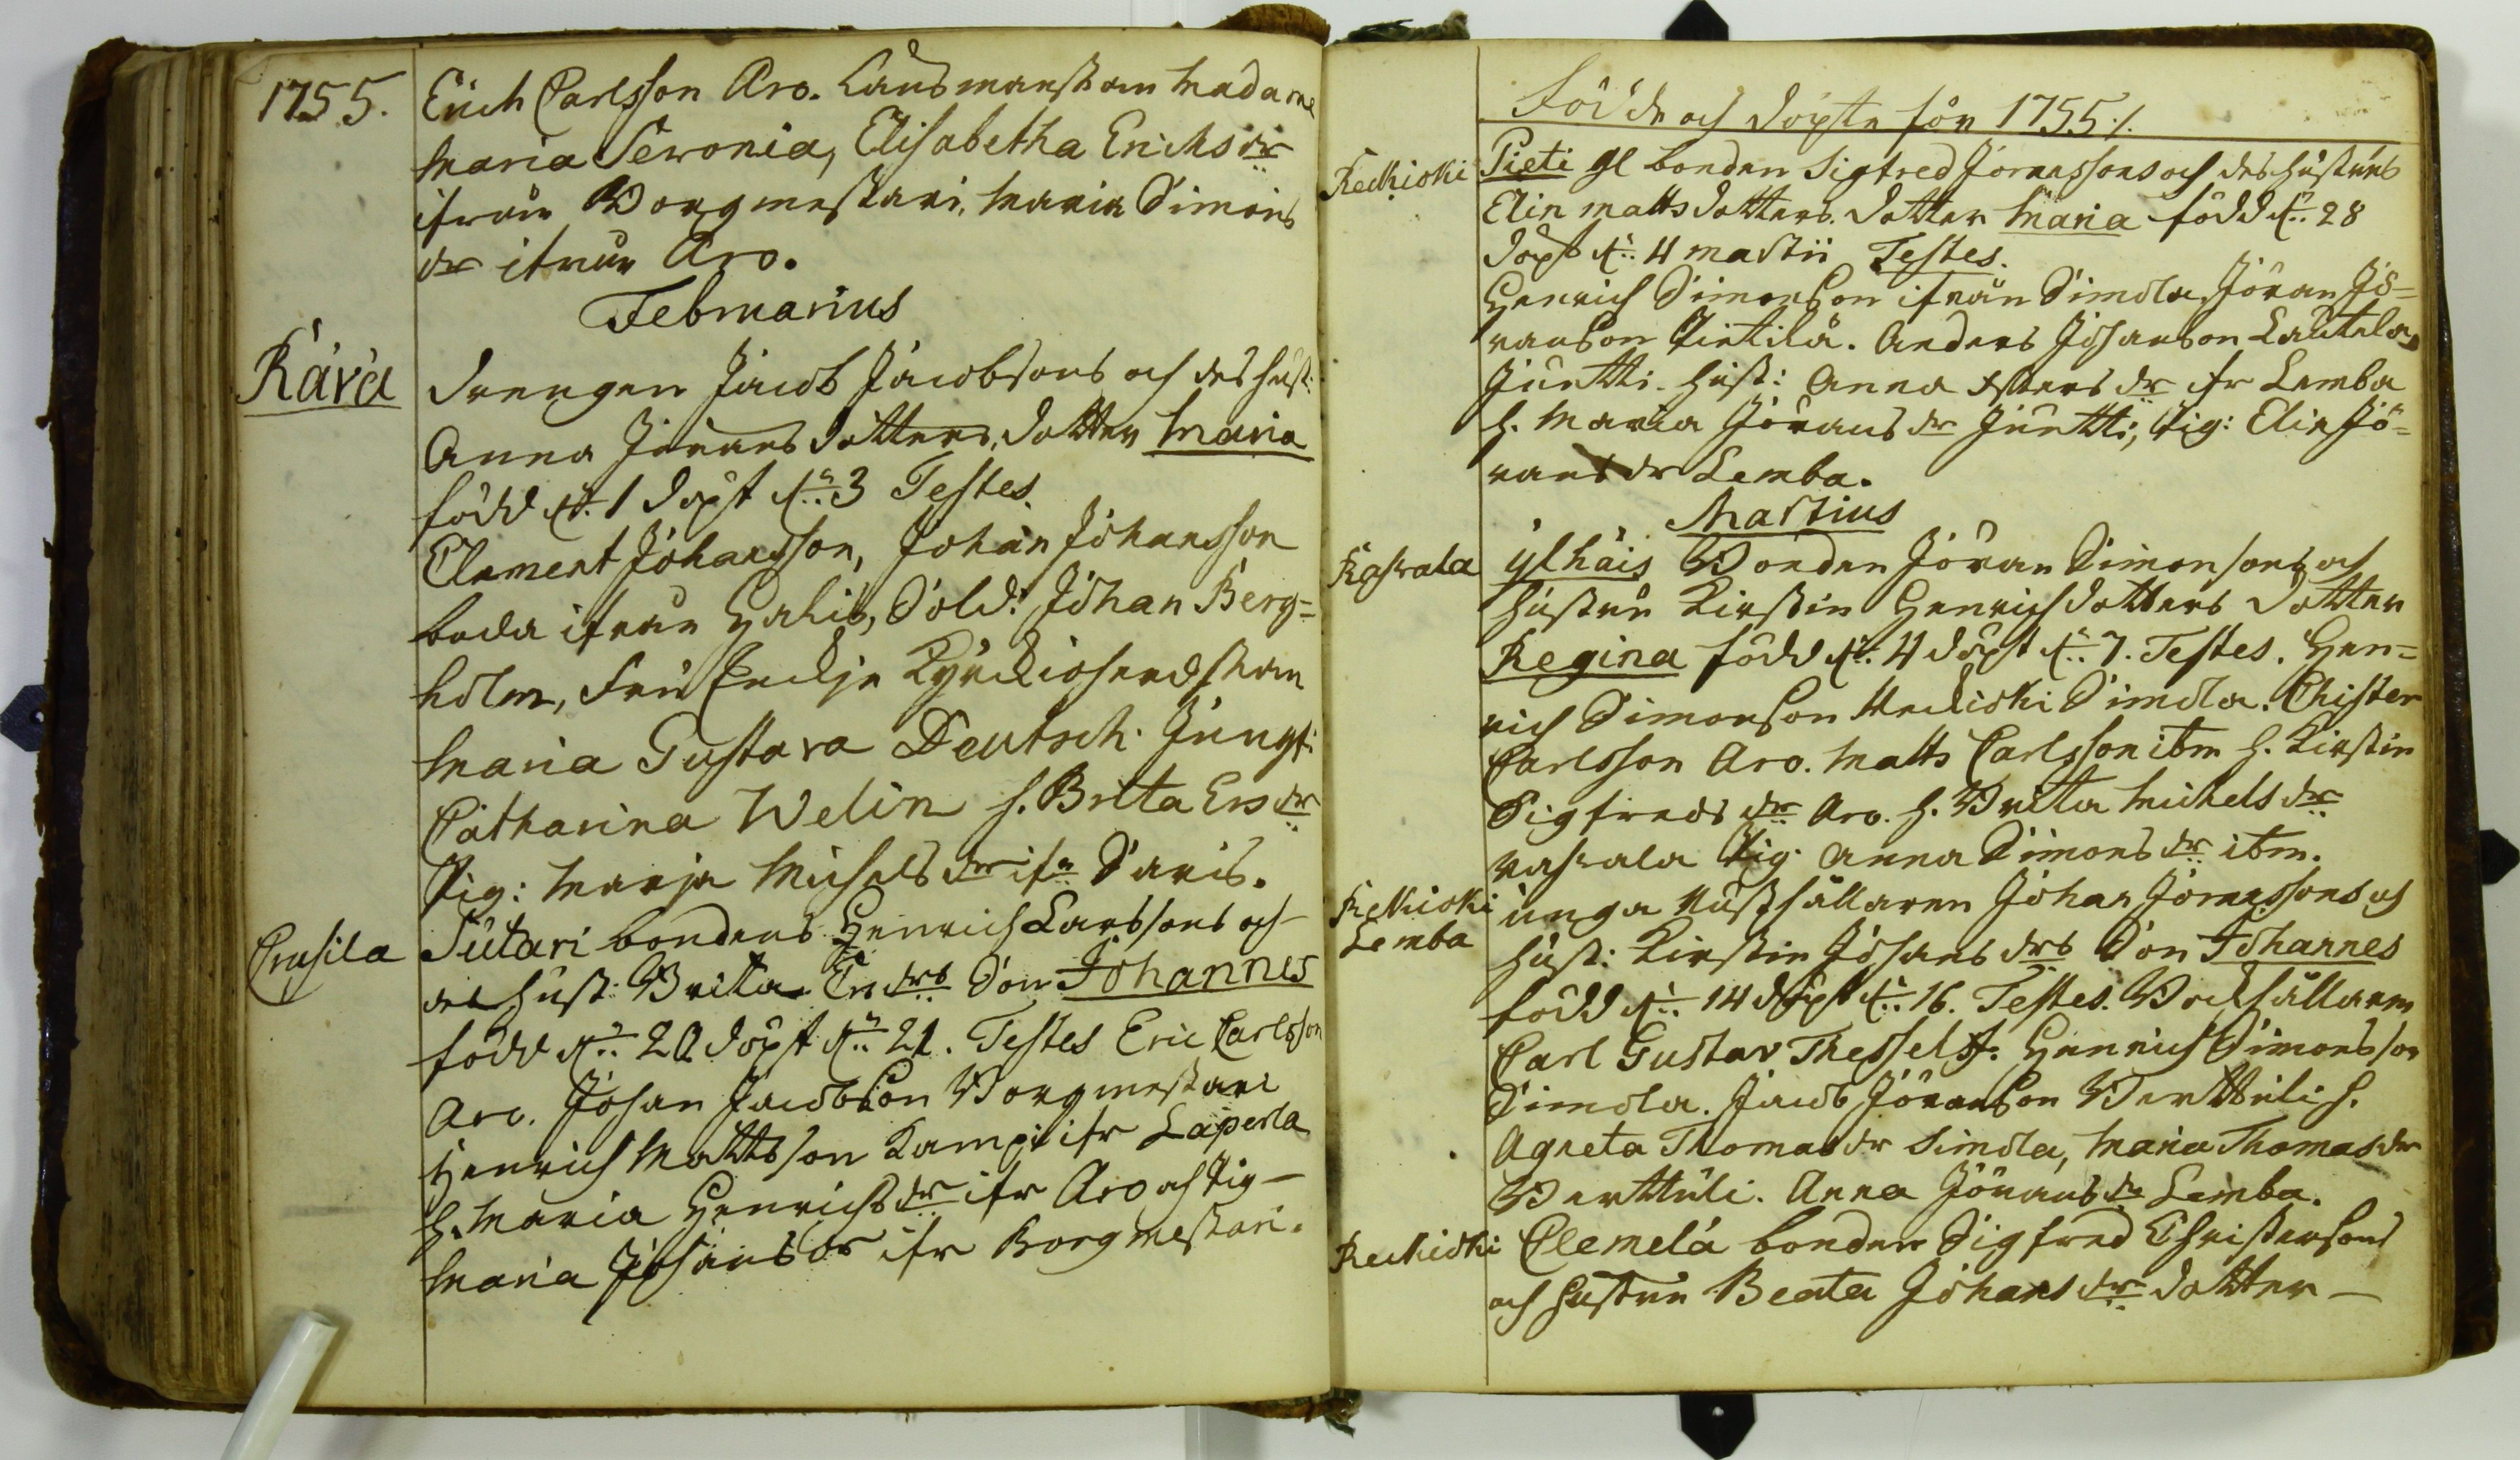 1755.
Erich Carlsson Aro. Länsmanskan Madame
Maria Seronia, Elisabetha Erichs dr
ifrån Borgmestari, Maria Simons
dr ifrån Aro.
Februarius
Rärä
Drengen Jacob Jacobsons och des hust:
Anna Jörans dotters, dotter Maria
född d. 1 döpt d. 3 Testes
Clement Johansson, Johan Johansson
båda ifrån Hahis, Sold: Johan Berg=
holm, Fru
Maria Gustava Deutsch. Jungf:
Catharina Welin h. Brita Ers dr
Pig: Marja Michels dr ifr Saris.
Crusila
Sutari bondens Henrich Larssons och
des hust: Brita Ers drs Son Johannes
född d. 20 döpt d. 21. Testes Eric Carlsson
Aro. Johan Jacobson Borgmestari
Henrich Mattsson Kampi ifr Laperla
h. Maria Henrichs dr ifr Aro och Pig
Maria Johans dr ifr Borgmestari.
Födde och Döpte för 1755 /.
Keckioki
Pieti gl bonden Sigfred Jöranssons och des hustrus
Elin Matts dotters. dotter Maria född d. 28
döpt d. 4 Martii Testes.
Henrich Simonson ifrån Simola, Jöran Jö=
ranson Pietilä. Anders Johanson Lautela
Juntti. hust: Anna dr ifr Lemba
h. Maria Jörans dr Juntti, Pig: Elin Jö=
rans dr Lemba.
Martius
Raskala
ylhäis Bonden Jöran Simonsons och
hustru Kirstin Henrichsdotters dotter
Regina född d. 4 döpt d. 7. Testes. Hen=
rich Simonson Keckioki Simola. Christer
Carlsson Aro. Matts Carlsson ibm h. Kirstin
Sigfreds dr Aro. h. Brita Michels dr
Raskala Pig: Anna Simons dr ibm.
Keckioki
Lemba
unga Rusthållaren Johan Jöranssons och
hust: Kirstin Johans drs Son Johannes
född d. 14 döpt d. 16. Testes. Bockhållaren
Carl Gustav Thesself. Henrich Simonsson
Simola. Jacob Jöranson Verttuli h.
Agneta Thomas dr Simola, Maria Thomas dr
Verttuli. Anna Jörans dr Lemba.
Keckioki
Clemelä bonden Sigfred Christersons
och hustru Beata Johans drs dotter